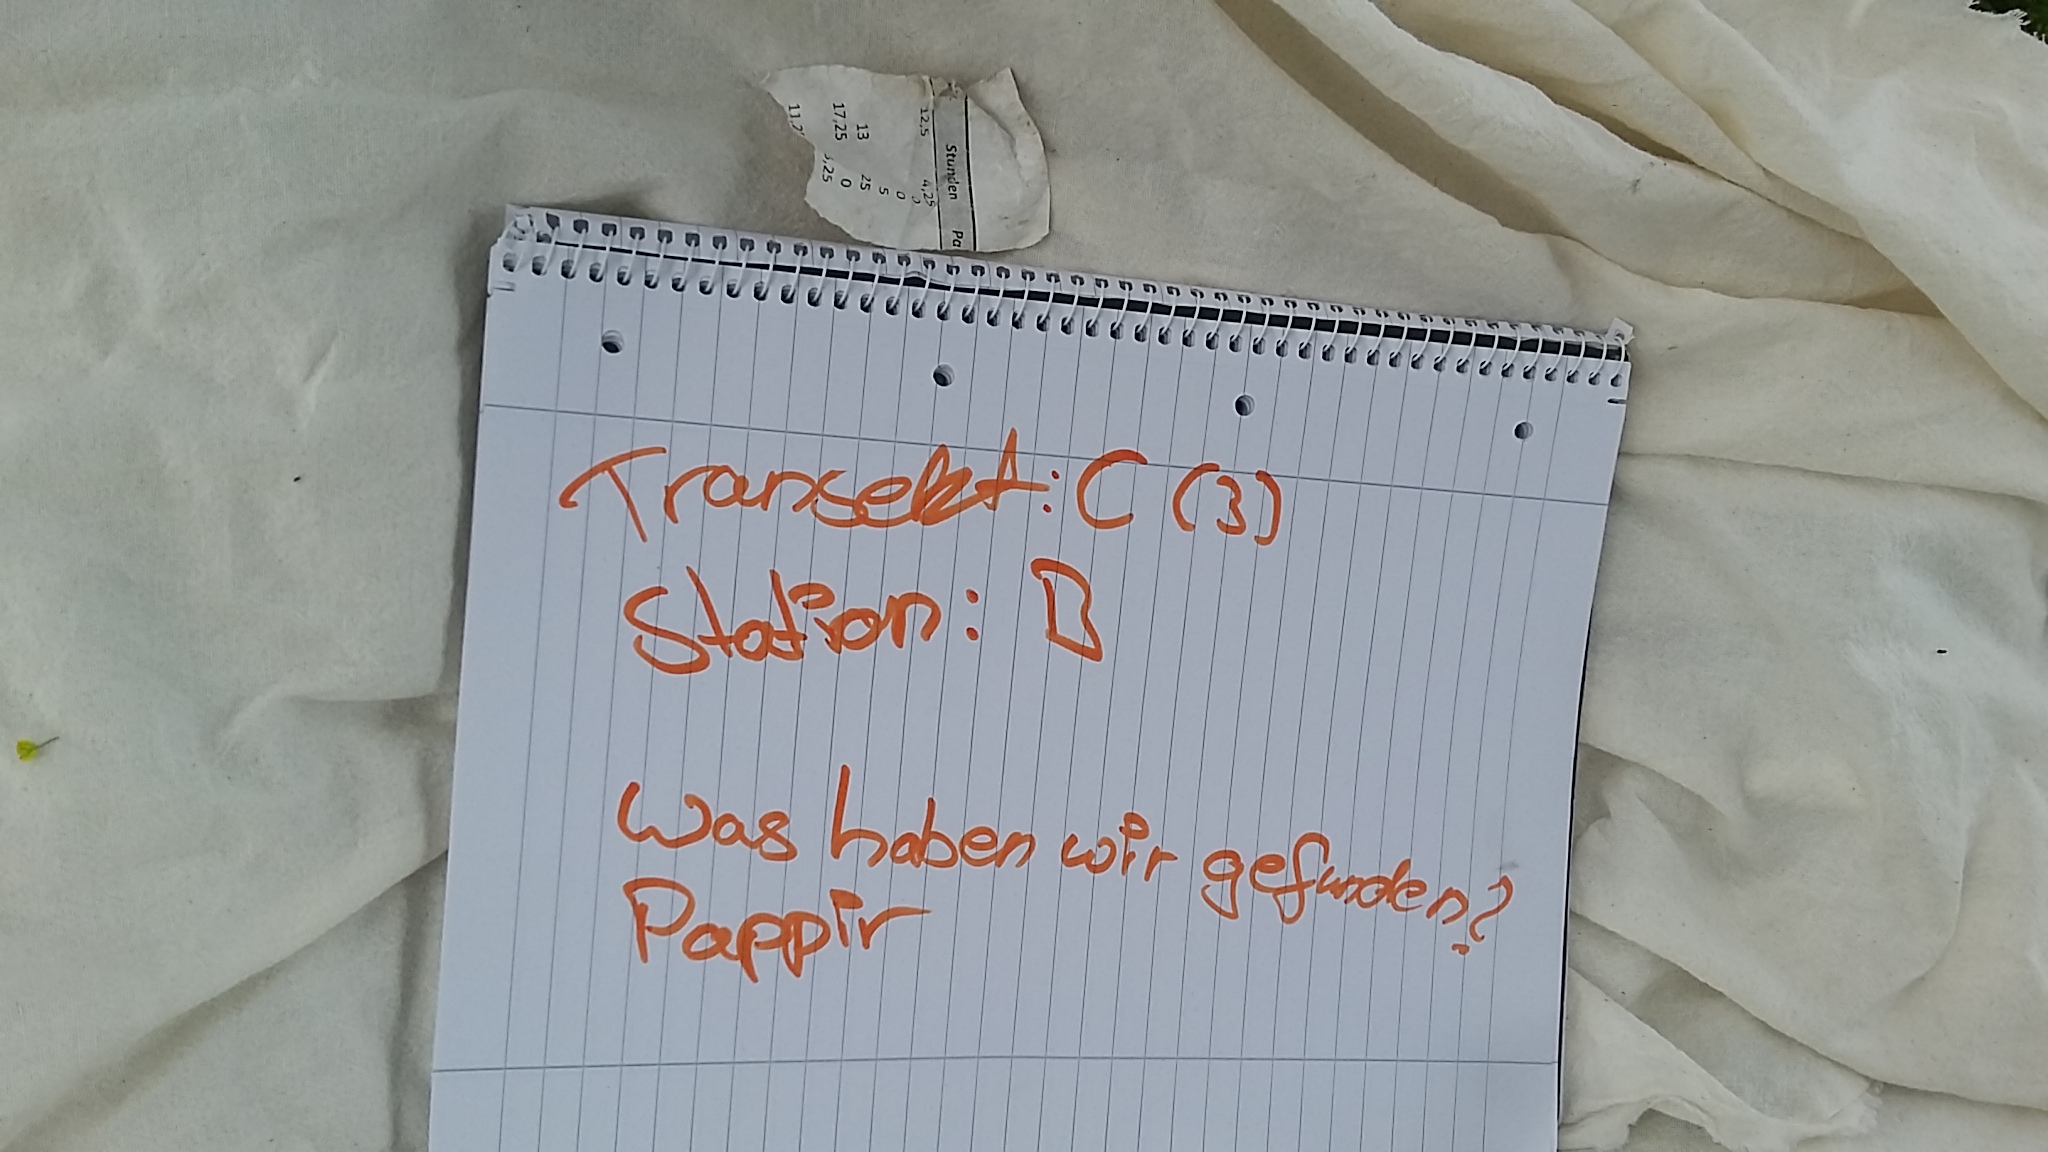 Transekt: C (3)
Station: B
Was haben wir gefunden?
Pappir
Stunden Pa
12,5 4,25
0
5
13 25
17,25 0